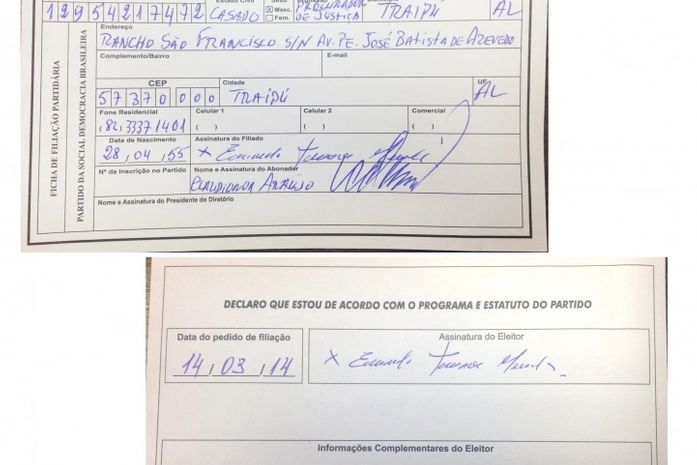 Estado Civil Sexo
129542174 72 CASADO Masc. Fem. PROCURADOR DE JUSTIÇA TRAIPÚ AL
Endereço
RANCHO SÃO FRANCISCO S/N AV. PE. JOSÉ BATISTA DE AZEVEDO
Complemento/Bairro E-mail
CEP Cidade UF
57370000 TRAIPÚ AL
Fone Residencial Celular 1 Celular 2 Comercial
(82) 3337 1401 ( ) ( ) ( )
Data de Nascimento Assinatura do Filiado
28/04/55 x Eduardo Tavares Mendes
Nº da Inscrição no Partido Nome e Assinatura do Abonador
CLAUDIONOR ARAÚJO
Nome e Assinatura do Presidente do Diretório
FICHA DE FILIAÇÃO PARTIDÁRIA
PARTIDO DA SOCIAL DEMOCRACIA BRASILEIRA
DECLARO QUE ESTOU DE ACORDO COM O PROGRAMA E ESTATUTO DO PARTIDO
Data do pedido de filiação Assinatura do Eleitor
14/03/14 x Eduardo Tavares Mendes
Informações Complementares do Eleitor